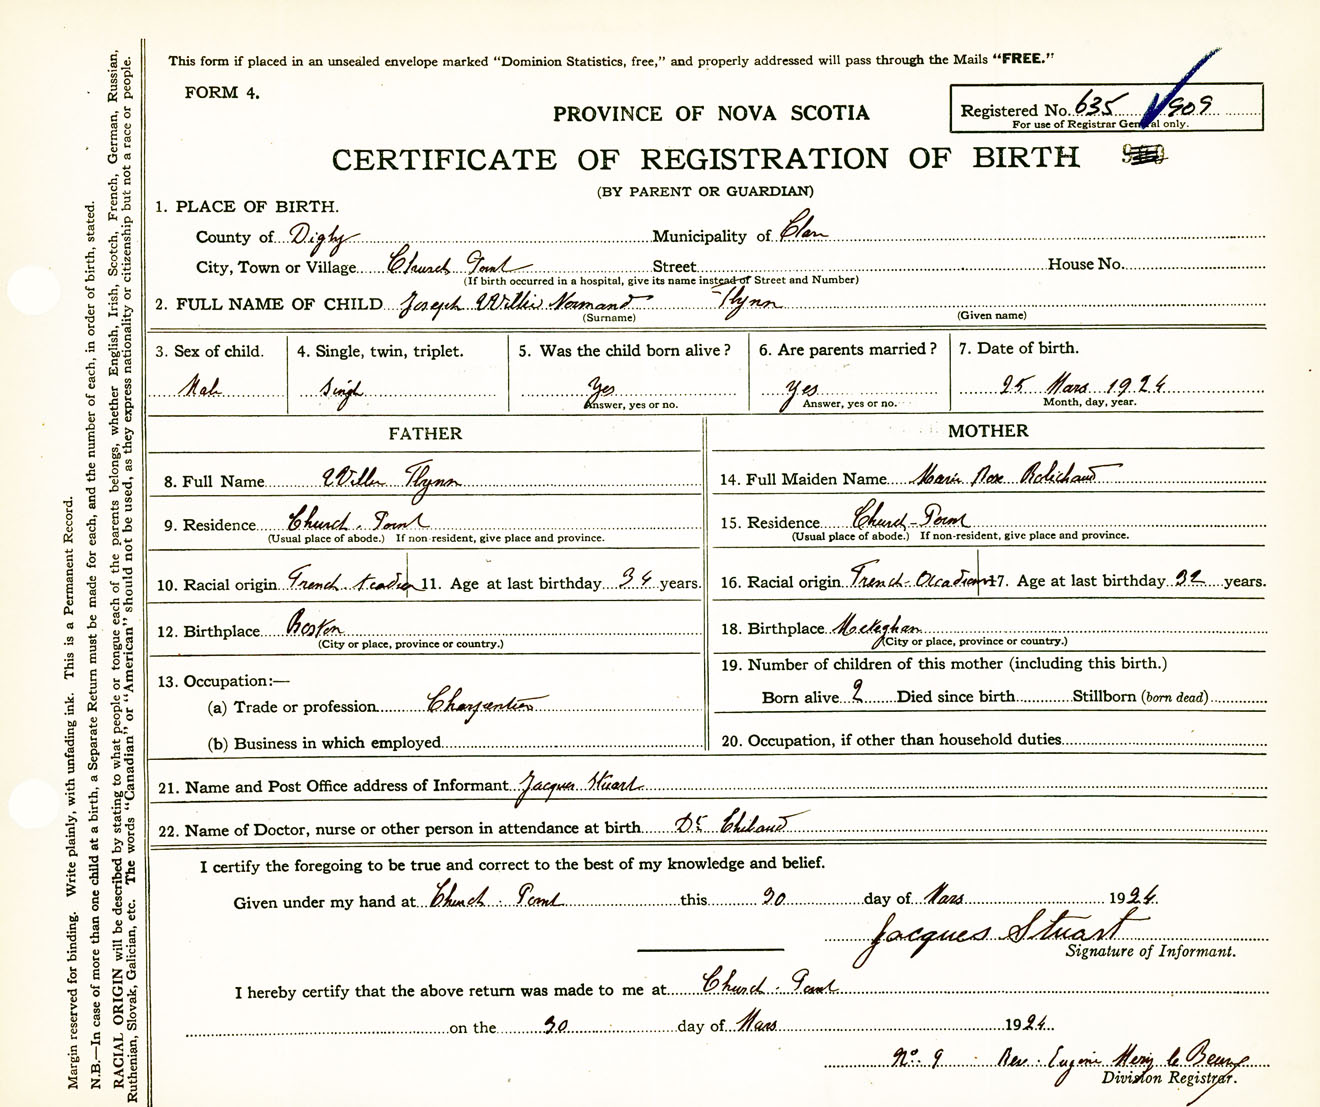 This form if placed in an unsealed envelope marked "Dominion Statistics, free," and properly addressed will pass through the Mails "FREE."
FORM 4.
PROVINCE OF NOVA SCOTIA
Registered No. 635 909
For use of Registrar General only.
CERTIFICATE OF REGISTRATION OF BIRTH
(BY PARENT OR GUARDIAN)
1. PLACE OF BIRTH.
County of Digby Municipality of Clare
City, Town or Village Church Point Street House No.
(If birth occurred in a hospital, give its name instead of Street and Number)
2. FULL NAME OF CHILD Joseph Willie Normand Flynn
(Surname) (Given name)
3. Sex of child. 4. Single, twin, triplet. 5. Was the child born alive? 6. Are parents married? 7. Date of birth.
Male Single Yes Yes 25 Mars 1924
Answer, yes or no. Answer, yes or no. Month, day, year.
FATHER MOTHER
8. Full Name Willie Flynn 14. Full Maiden Name Marie Rose Robichaud
9. Residence Church-Point 15. Residence Church-Point
(Usual place of abode.) If non-resident, give place and province. (Usual place of abode.) If non-resident, give place and province.
10. Racial origin French-Acadien 11. Age at last birthday 34 years. 16. Racial origin French-Acadien 17. Age at last birthday 32 years.
12. Birthplace Boston 18. Birthplace Meteghan
(City or place, province or country.) (City or place, province or country.)
19. Number of children of this mother (including this birth.)
13. Occupation:—
Born alive 2 Died since birth Stillborn (born dead)
(a) Trade or profession Charpentier
(b) Business in which employed 20. Occupation, if other than household duties
21. Name and Post Office address of Informant Jacques Stuart
22. Name of Doctor, nurse or other person in attendance at birth Dr
I certify the foregoing to be true and correct to the best of my knowledge and belief.
Given under my hand at Church-Point this 30 day of Mars 1924
Jacques Stuart
Signature of Informant.
I hereby certify that the above return was made to me at Church-Point
on the 30 day of Mars 1924.
No. 9 Rev. Eugène le
Division Registrar.
Margin reserved for binding. Write plainly, with unfading ink. This is a Permanent Record.
N.B.—In case of more than one child at a birth, a Separate Return must be made for each, and the number of each, in order of birth, stated.
RACIAL ORIGIN will be described by stating to what people or tongue each of the parents belongs, whether English, Irish, Scotch, French, German, Russian,
Ruthenian, Slovak, Galician, etc. The words "Canadian" or "American" should not be used, as they express nationality or citizenship but not a race or people.